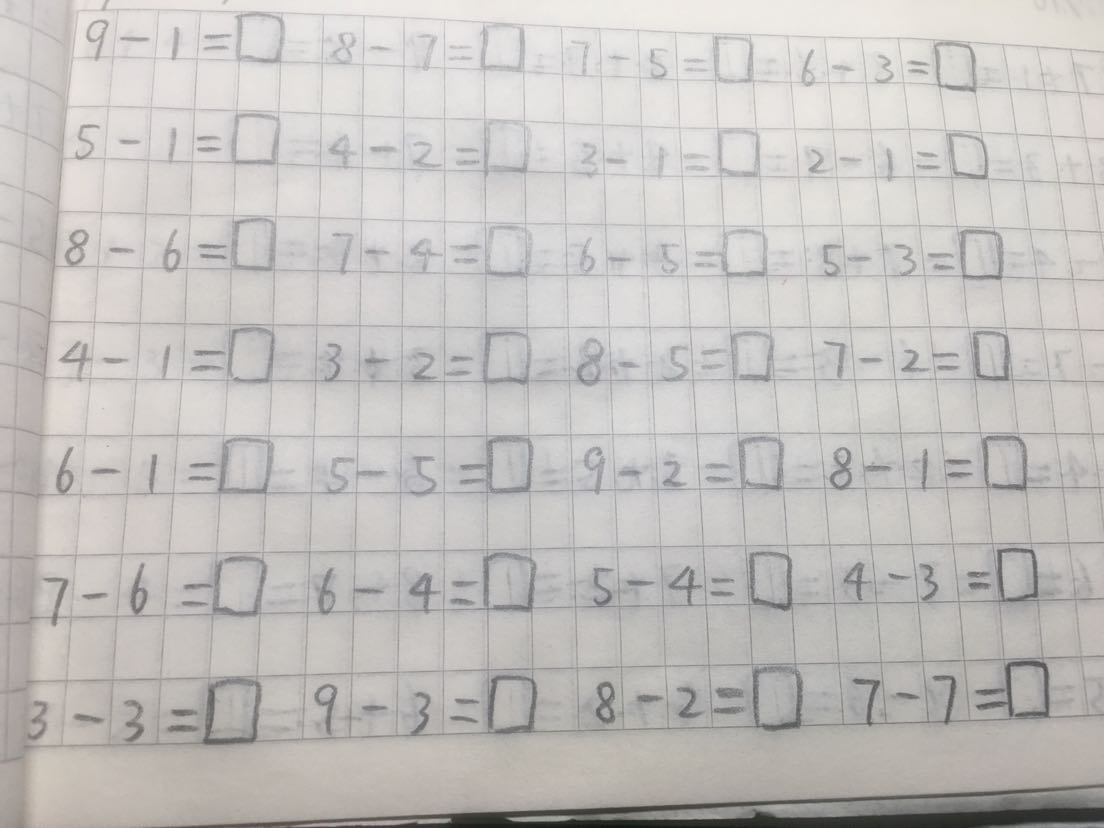 9-1=□ 8-7=□ 7-5=□ 6-3=□
5-1=□ 4-2=□ 3-1=□ 2-1=□
8-6=□ 7-4=□ 6-5=□ 5-3=□
4-1=□ 3-2=□ 8-5=□ 7-2=□
6-1=□ 5-5=□ 9-2=□ 8-1=□
7-6=□ 6-4=□ 5-4=□ 4-3=□
3-3=□ 9-3=□ 8-2=□ 7-7=□